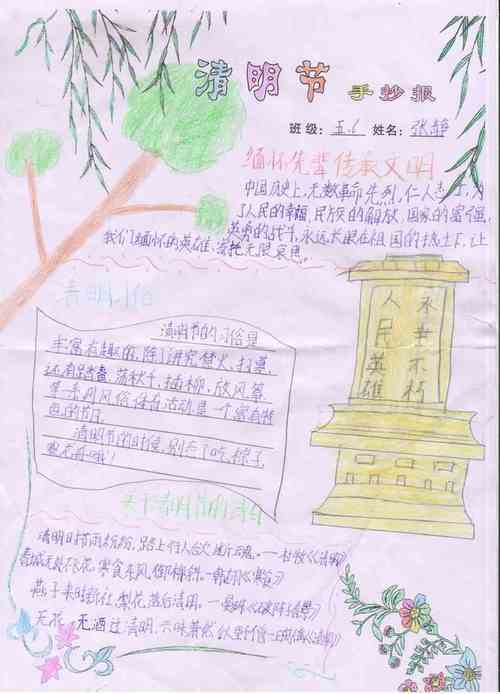 清明节 手抄报
班级: 五.6 姓名: 张静
缅怀先辈 传承文明
中国历史上,无数革命先烈,仁人志士,为
了人民的幸福,民族的解放,国家的富强
英勇的战斗,永远长眠在祖国的热土下,让
我们缅怀的英雄,寄托无限哀思。
清明习俗
清明节的习俗是
丰富有趣的,除了讲究禁火、扫墓,
还有踏青、荡秋千、插柳、放风筝
清明节的时候,别忘了吃
永垂不朽
人民英雄
关于清明节的诗句
清明时节雨纷纷,路上行人欲断魂。——杜牧《清明》
春城无处不飞花,寒食东风御柳斜。—韩翃《寒食》
燕子来时新社,梨花落后清明。—晏殊《破阵子》
无花无酒过清明,兴味萧然